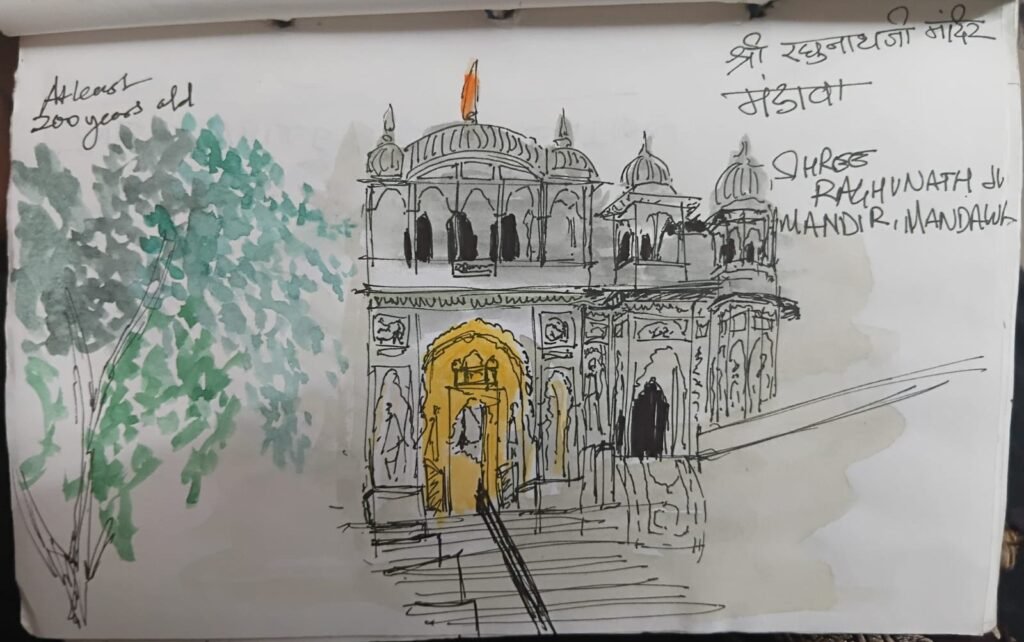 At least
200 years old
श्री रघुनाथजी मंदिर
मंडावा
SHREE
RAGHUNATH JI
MANDIR, MANDAWA